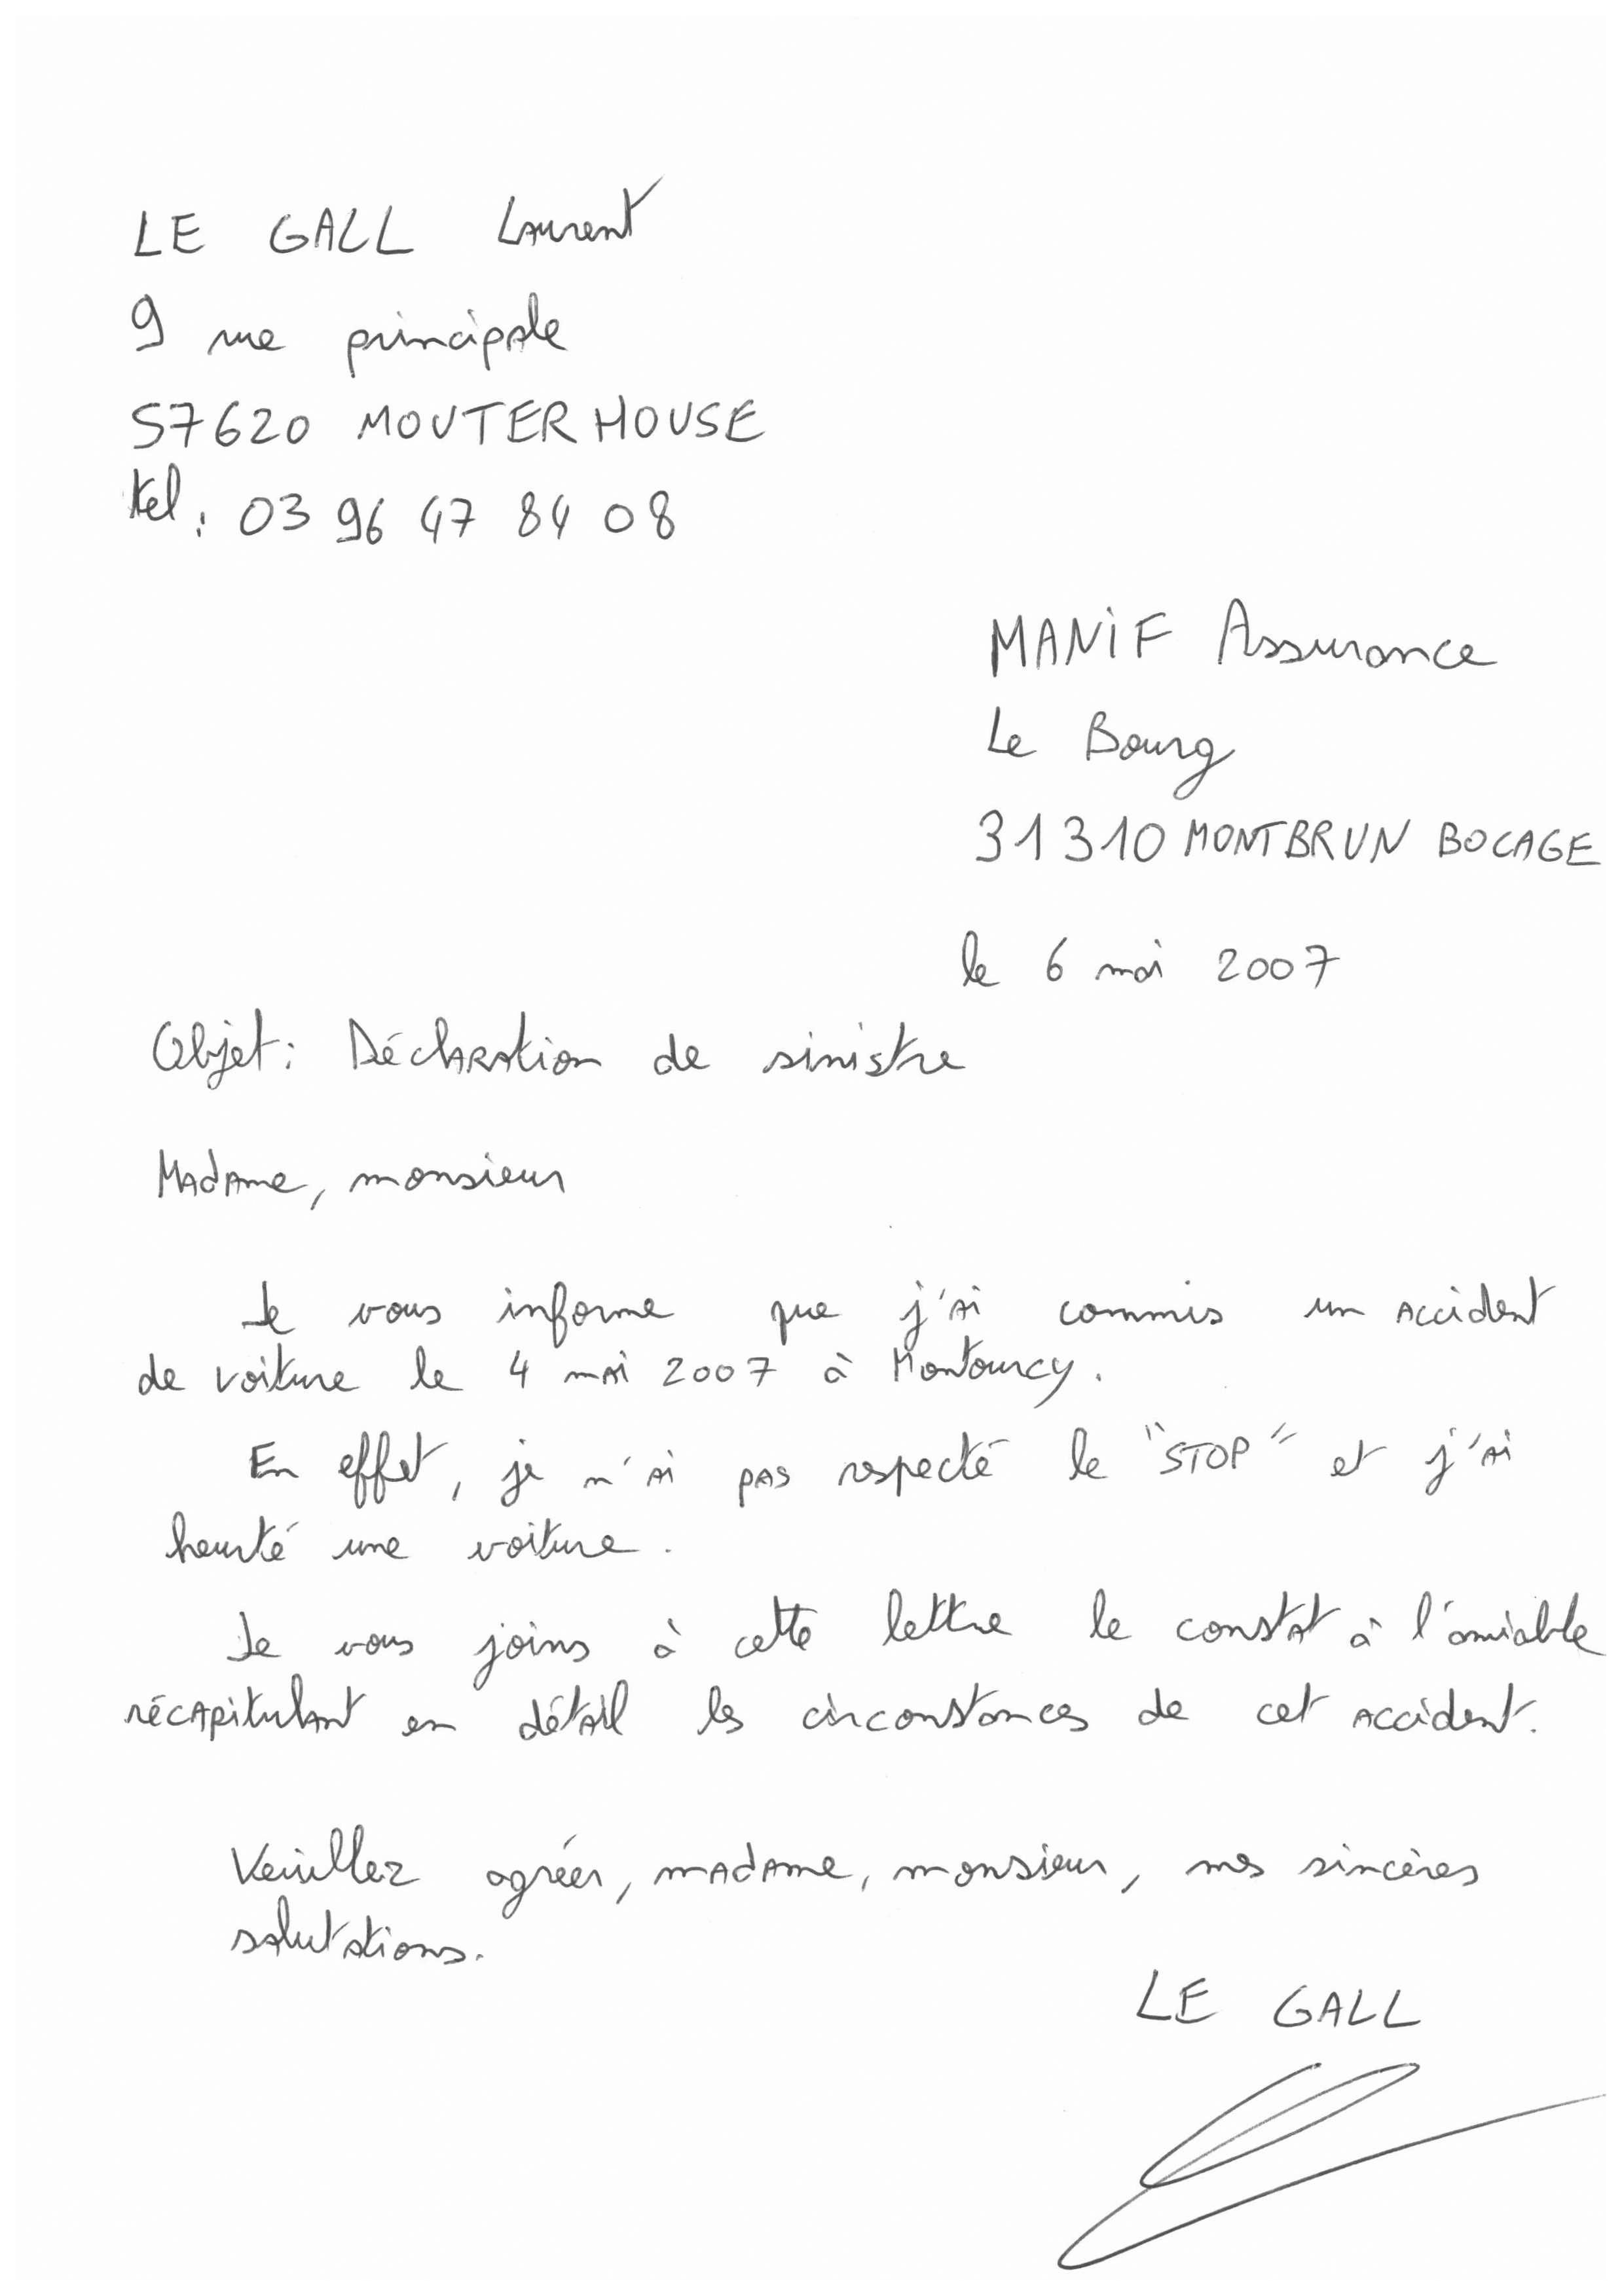 LE GALL Laurent
9 rue principale
57620 MOUTERHOUSE
tel : 03 96 47 84 08
MANIF Assurance
Le Bourg
31310 MONTBRUN BOCAGE
le 6 mai 2007
Objet : Déclaration de sinistre
Madame, monsieur
Je vous informe que j'ai commis un accident
de voiture le 4 mai 2007 à Montourcy.
En effet, je n'ai pas respecté le "STOP" et j'ai
heurté une voiture.
Je vous joins à cette lettre le constat à l'amiable
récapitulant en détail les circonstances de cet accident.
Veuillez agréer, madame, monsieur, mes sincères
salutations.
LE GALL